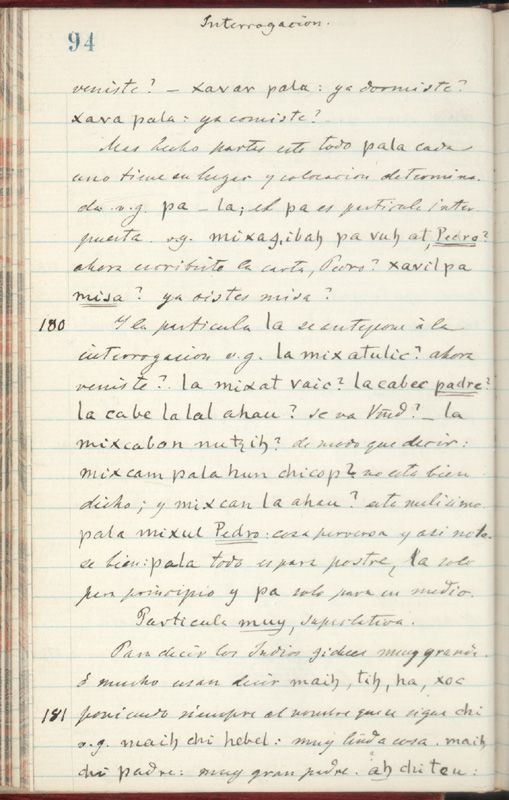 Interrogacion.
94
veniste? – xavar pala: ya dormiste?
xava pala: ya comiste?
Mas hecho partes este todo pala cada
uno tiene su lugar y colocacion determina-
da v.g. pa – la; el pa es particula inter-
puesta. v.g. mixaɡibaɧ pa vuɧ at, Pedro?
ahora escribiste la carta, Pedro? xavil pa
misa? ya oistes misa?
180 Y la particula la se antepone á la
interrogacion v.g. la mixatulic? ahora
veniste? la mixat vaic? la cabec padre?
la cabe la lal ahau? se va Vmd? – la
mixcabon nutziɧ? de modo que decir:
mixcam pala hun chicop? no esta bien
dicho; y mixcan la ahau? este
pala mixul Pedro: cosa perversa y asi note-
se bien: pala todo es para postre, la solo
para principio y pa solo para en medio.
Particula muy, superlativa.
Para decir los Indios muy grande
ó mucho usan decir maiɧ, tiɧ, ha, xoc
181 poniendo siempre al nombre que se sigue chi
v.g. maiɧ chi hebel: muy linda cosa. maiɧ
chi padre: muy gran padre. aɧ chi teu: